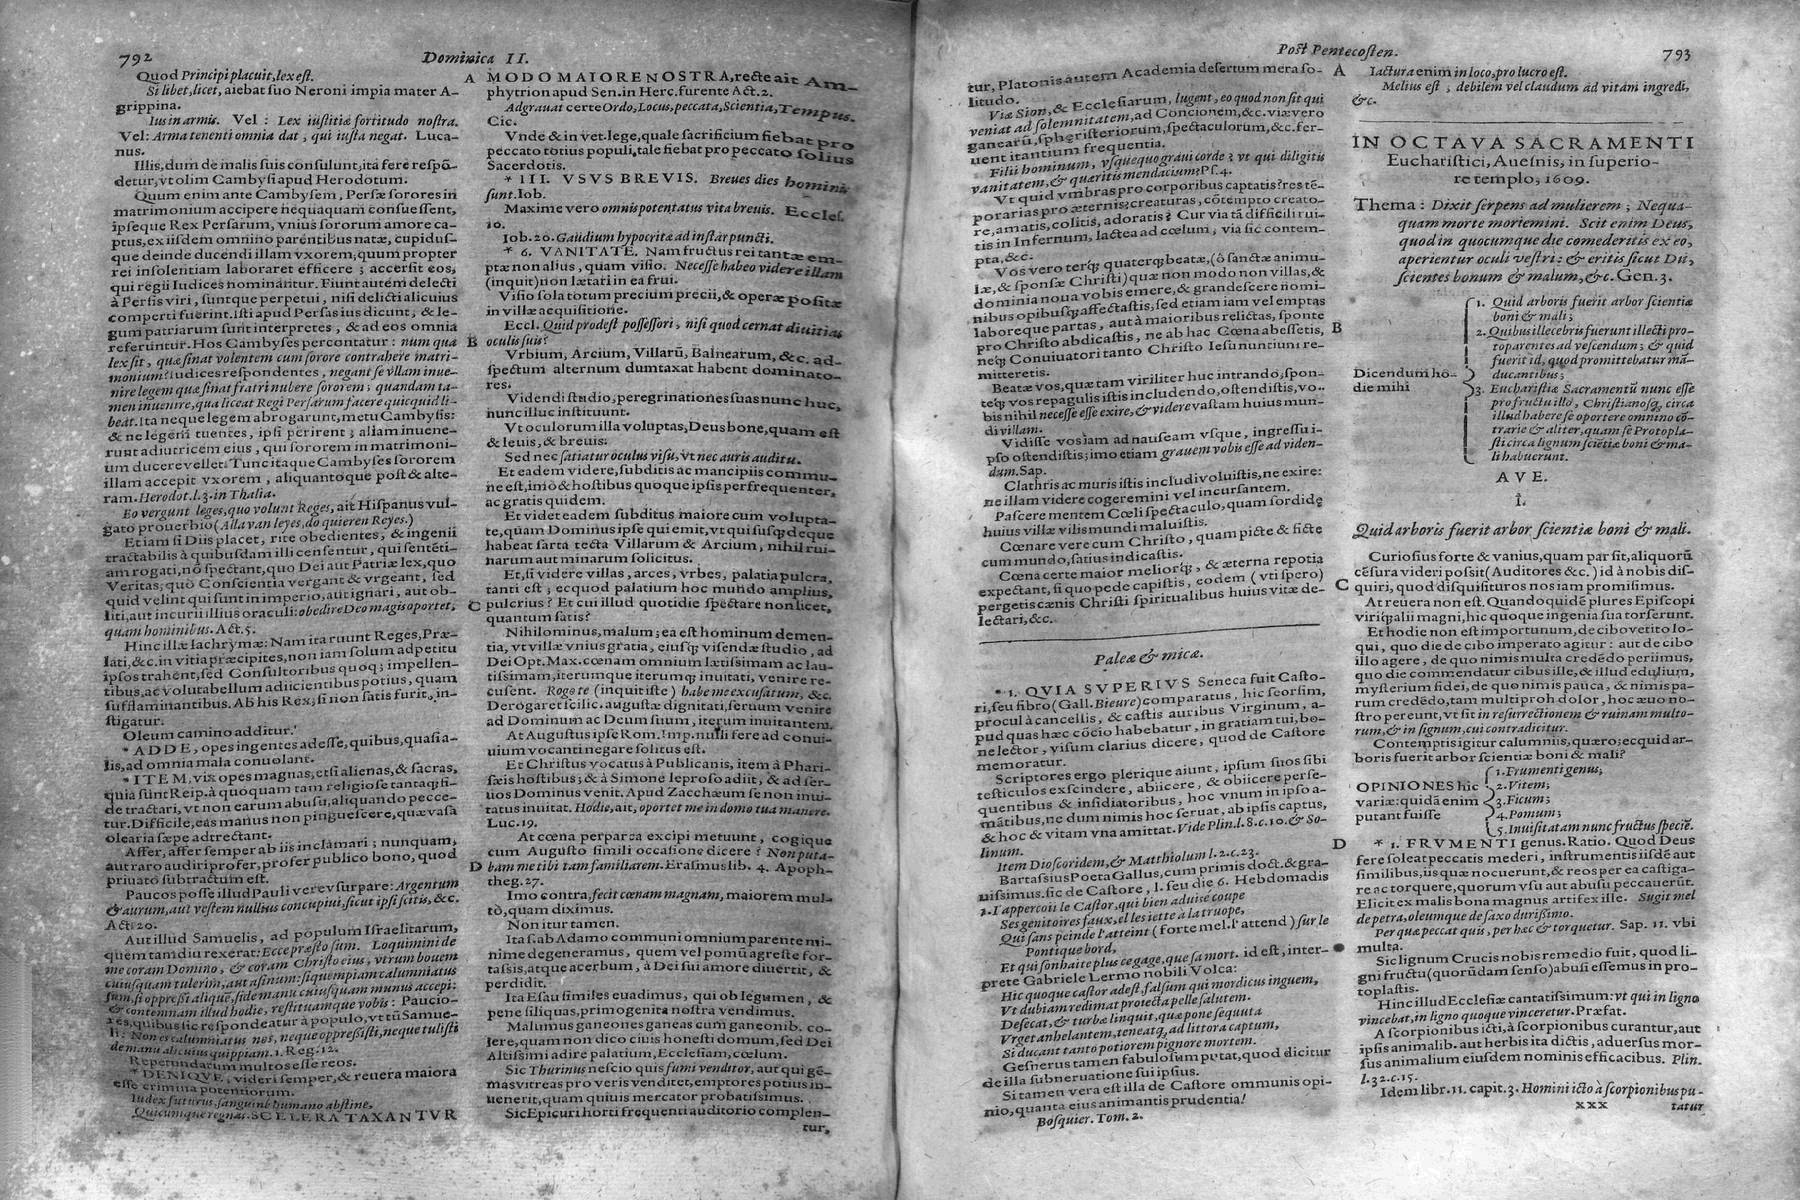 792
Dominica II.
Quod Principi placuit, lex est.
Si libet, licet, aiebat suo Neroni impia mater A-
grippina.
Ius in armis. Vel : Lex iustitiæ fortitudo nostra.
Vel: Arma tenenti omnia dat , qui iusta negat. Luca-
nus.
Illis, dum de malis suis consulunt, ita fere respō-
detur, vt olim Cambysi apud Herodotum.
Quum enim ante Cambysem, Persæ sorores in
matrimonium accipere nequaquam consuessent,
ipseque Rex Persarum, vnius sororum amore ca-
ptus, ex iisdem omnino parentibus natæ, cupidus-
que deinde ducendi illam vxorem; quum propter
rei insolentiam laboraret efficere ; accersit eos,
qui regii Iudices nominantur. Fiunt autem delecti
à Persis viri , suntque perpetui , nisi delicti alicuius
comperti fuerint. isti apud Persas ius dicunt, & le-
gum patriarum sunt interpretes , & ad eos omnia
referuntur. Hos Cambyses percontatur : num qua
lex sit , quæ sinat volentem cum sorore contrahere matri-
monium? Iudices respondentes , negant se vllam inue-
nire legem quæ sinat fratri nubere sororem ; quandam ta-
men inuenire, qua liceat Regi Persarum facere quicquid li-
beat. Ita neque legem abrogarunt, metu Cambysis:
& ne legem tuentes, ipsi perirent ; aliam inuene-
runt adiutricem eius , qui sororem in matrimoni-
um ducere vellet. Tunc itaque Cambyses sororem
illam accepit vxorem , aliquantoque post & alte-
ram. Herodot. l. 3. in Thalia.
Eo vergunt leges, quo volunt Reges, ait Hispanus vul-
gato prouerbio (Alla van leyes, do quieren Reyes.)
Etiam si Diis placet, rite obedientes , & ingenii
tractabilis à quibusdam illi censentur, qui sentēti-
am rogati, nō spectant, quo Dei aut Patriæ lex, quo
Veritas; quò Conscientia vergant & vrgeant, sed
quid velint qui sunt in imperio, aut ignari, aut ob-
liti, aut incurii illius oraculi: obedire Deo magis oportet,
quam hominibus. Act. 5.
Hinc illæ lachrymæ: Nam ita ruunt Reges, Præ-
lati, &c. in vitia præcipites, non iam solum ad petitu
ipsos trahent, sed Consultoribus quoq; impellen-
tibus, ac volutabellum adiicientibus potius, quam
sufflaminantibus. Ab his Rex, si non satis furit, in-
stigatur.
Oleum camino additur.
* ADDE, opes ingentes adesse, quibus, quasi a-
lis, ad omnia mala conuolant.
* ITEM, vix opes magnas, etsi alienas, & sacras,
quia sunt Reip. à quoquam tam religiose tantaq; fi-
de tractari, vt non earum abusu, aliquando pecce-
tur. Difficile, eas manus non pinguescere, quæ vasa
olearia sæpe adtrectant.
Affer, affer semper ab iis inclamari ; nunquam,
aut raro audiri profer, profer publico bono, quod
priuato subtractum est.
Paucos posse illud Pauli vere vsurpare: Argentum
& aurum, aut vestem nullius concupiui, sicut ipsi scitis, &c.
Act. 20.
Aut illud Samuelis, ad populum Israelitarum,
quem tamdiu rexerat: Ecce præsto sum. Loquimini de
me coram Domino, & coram Christo eius, vtrum bouem
cuiusquam tulerim, aut asinum: si quempiam calumniatus
sum, si oppressi aliquē, si de manu cuiusquam munus accepi:
& contemnam illud hodie, restituamque vobis : Paucio-
res, quibus sic respondeatur à populo, vt tū Samue-
li: Non es calumniatus nos, neque oppressisti, neque tulisti
de manu alicuius quippiam. 1. Reg. 12.
Repetundarum multos esse reos.
* DENIQVE, videri semper, & reuera maiora
esse crimina potentiorum.
Iudex futurus, sanguine humano abstine,
Quicumque regnas. SCELERA TAXANTVR
A
B
C
D
MODO MAIORE NOSTRA, recte ait Am-
phytrion apud Sen. in Herc. furente Act. 2.
Adgrauat certe Ordo, Locus, peccata, Scientia, Tempus.
Cic.
Vnde & in vet. lege, quale sacrificium fiebat pro
peccato totius populi, tale fiebat pro peccato solius
Sacerdotis.
* III. VSVS BREVIS. Breues dies hominis
sunt. Iob.
Maxime vero omnis potentatus vita breuis. Eccles.
10.
Iob. 20. Gaudium hypocritæ ad instar puncti.
* 6. VANITATE. Nam fructus rei tantæ em-
ptæ non alius , quam visio. Necesse habeo videre illam
(inquit) non lætari in ea frui.
Visio sola totum precium precii, & operæ positæ
in villæ acquisitione.
Eccl. Quid prodest possessori, nisi quod cernat diuitias
oculis suis?
Vrbium, Arcium, Villarū, Balnearum, &c. ad-
spectum alternum dumtaxat habent dominato-
res.
Videndi studio, peregrinationes suas nunc huc,
nunc illuc instituunt.
Vt oculorum illa voluptas, Deus bone, quam est
& leuis, & breuis:
Sed nec satiatur oculus visu, vt nec auris auditu.
Et eadem videre, subditis ac mancipiis commu-
ne est, imò & hostibus quoque ipsis perfrequenter,
ac gratis quidem.
Et videt eadem subditus maiore cum volupta-
te, quam Dominus ipse qui emit, vt qui susq; deque
habeat sarta tecta Villarum & Arcium, nihil rui-
narum aut minarum solicitus.
Et, si videre villas, arces, vrbes, palatia pulcra,
tanti est ; ecquod palatium hoc mundo amplius,
pulcrius? Et cui illud quotidie spectare non licet,
quantum satis?
Nihilominus, malum; ea est hominum demen-
tia, vt villæ vnius gratia, eiusq; visendæ studio , ad
Dei Opt. Max. cœnam omnium lætissimam ac lau-
tissimam, iterumque iterumq; inuitati, venire re-
cusent. Rogo te (inquit iste) habe me excusatum, &c.
Derogaret icilic. augustæ dignitati, seruum venire
ad Dominum ac Deum suum , iterum inuitantem.
At Augustus ipse Rom. Imp. nulli fere ad conui-
uium vocanti negare solitus est.
Et Christus vocatus à Publicanis, item à Phari-
sæis hostibus; & à Simone leproso adiit, & ad ser-
uos Dominus venit. Apud Zacchæum se non inui-
tatus inuitat. Hodie, ait, oportet me in domo tua manere.
Luc. 19.
At cœna perparca excipi metuunt , cogique
cum Augusto simili occasione dicere ? Non puta-
bam me tibi tam familiarem. Erasmus lib. 4. Apoph-
theg. 27.
Imo contra, fecit cœnam magnam, maiorem mul-
tò, quam diximus.
Non itur tamen.
Ita s. ab Adamo communi omnium parente mi-
nime degeneramus, quem vel pomū agreste for-
tassis, atque acerbum, à Dei sui amore diuertit, &
perdidit.
Ita Esau similes euadimus, qui ob legumen, &
pene siliquas, primogenita nostra vendimus.
Malumus ganeones ganeas cum ganeonib. co-
lere, quam non dico ciuis honesti domum, sed Dei
Altissimi adire palatium, Ecclesiam, cœlum.
Sic Thurinus nescio quis fumi venditor, aut qui gē-
mas vitreas pro veris venditet, emptores potius in-
uenerit, quam quiuis mercator probatissimus.
Sic Epicuri horti frequenti auditorio complen-
tur,
Post Pentecosten.
793
tur, Platonis autem Academia desertum mera so-
litudo.
Viæ Sion, & Ecclesiarum, lugent, eo quod non sit qui
veniat ad solemnitatem, ad Concionem, &c. viæ vero
ganearū, sphęristeriorum, spectaculorum, &c. fer-
uent itantium frequentia.
Filii hominum, vsquequo graui corde ? vt qui diligitis
vanitatem, & quæritis mendacium? Ps. 4.
Vt quid vmbras pro corporibus captatis? res tē-
porarias pro æternis; creaturas, cōtempto creato-
re, amatis, colitis, adoratis? Cur via tā difficili rui-
tis in Infernum, lactea ad cœlum, via sic contem-
pta, &c.
Vos vero terq; quaterq; beatæ, (ô sanctæ animu-
læ, & sponsæ Christi) quæ non modo non villas, &
dominia noua vobis emere, & grandescere nomi-
nibus opibusq; affectastis, sed etiam iam vel emptas
laboreque partas , aut à maioribus relictas, sponte
pro Christo abdicastis, ne ab hac Cœna abessetis,
neq; Conuiuatori tanto Christo Iesu nuntium re-
mitteretis.
Beatæ vos, quæ tam viriliter huc intrando, spon-
teq; vos repagulis istis includendo, ostendistis, vo-
bis nihil necesse esse exire, & videre vastam huius mun-
di villam.
Vidisse vos iam ad nauseam vsque, ingressu i-
pso ostendistis; imo etiam grauem vobis esse ad viden-
dum. Sap.
Clathris ac muris istis includi voluistis, ne exire:
ne illam videre cogeremini vel incursantem.
Pascere mentem Cœli spectaculo, quam sordidę
huius villæ vilis mundi maluistis.
Cœnare vere cum Christo, quam picte & ficte
cum mundo, satius indicastis.
Cœna certe maior meliorq; , & æterna repotia
expectant, si quo pede capistis , eodem ( vti spero)
pergetis cænis Christi spiritualibus huius vitæ de-
lectari, &c.
Paleæ & micæ.
* 1. QVIA SVPERIVS Seneca fuit Casto-
ri, seu fibro (Gall. Bieure) comparatus, hic seorsim,
procul à cancellis, & castis auribus Virginum, a-
pud quas hæc cōcio habebatur, in gratiam tui, bo-
ne lector, visum clarius dicere, quod de Castore
memoratur.
Scriptores ergo plerique aiunt, ipsum suos sibi
testiculos exscindere, abiicere, & obiicere perse-
quentibus & insidiatoribus, hoc vnum in ipso a-
mātibus, ne dum nimis hoc seruat, ab ipsis captus,
& hoc & vitam vna amittat. Vide Plin. l. 8. c. 10. & So-
linum.
Item Dioscoridem, & Matthiolum l. 2. c. 23.
Bartassius Poeta Gallus, cum primis doct. & gra-
uissimus. sic de Castore, l. seu die 6. Hebdomadis
1. I'appercois le Castor, qui bien aduisé coupe
Ses genitoires faux, el les iette à la troupe,
Qui sans peinde l'atteint (forte mel. l'attend) sur le
Pontique bord,
Et qui sonhaite plus ce gage, que sa mort. id est, inter-
prete Gabriele Lermo nobili Volca:
Hic quoque castor adest, falsum qui mordicus inguem,
Vt dubiam redimat proiecta pelle salutem.
Defecat, & turbæ linquit, quæ pone sequuta
Vrget anhelantem, teneatq; ad littora captum,
Si ducant tanto potiorem pignore mortem.
Gesnerus tamen fabulosum putat, quod dicitur
de illa subneruatione sui ipsius.
Si tamen vera est illa de Castore ommunis opi-
nio, quanta eius animantis prudentia!
Bosquier. Tom. 2.
A
B
C
D
Iactura enim in loco, pro lucro est.
Melius est , debilem vel claudum ad vitam ingredi,
&c.
IN OCTAVA SACRAMENTI
Eucharistici, Auesnis, in superio-
re templo, 1609.
Thema : Dixit serpens ad mulierem ; Nequa-
quam morte moriemini. Scit enim Deus,
quod in quocumque die comederitis ex eo,
aperientur oculi vestri : & eritis sicut Dii,
scientes bonum & malum, &c. Gen. 3.
Dicendum ho-
die mihi
1. Quid arboris fuerit arbor scientiæ
boni & mali;
2. Quibus illecebris fuerunt illecti pro-
toparentes ad vescendum; & quid
fuerit id, quod promittebatur mā-
ducantibus;
3. Eucharistiæ Sacramentū nunc esse
pro fructu illo, Christianosq; circa
illud habere se oportere omnino cō-
trarie & aliter, quam se Protopla-
sti circa lignum sciētiæ boni & ma-
li habuerunt.
AVE.
I.
Quid arboris fuerit arbor scientiæ boni & mali.
Curiosius forte & vanius, quam par sit, aliquorū
cēsura videri possit (Auditores &c.) id à nobis dis-
quiri, quod disquisituros nos iam promisimus.
At reuera non est. Quandoquidē plures Episcopi
viriq; alii magni, hic quoque ingenia sua torserunt.
Et hodie non est importunum, de cibo vetito lo-
qui, quo die de cibo imperato agitur : aut de cibo
illo agere , de quo nimis multa credēdo periimus,
quo die commendatur cibus ille, & illud edulium,
mysterium fidei, de quo nimis pauca, & nimis pa-
rum credēdo, tam multi proh dolor, hoc æuo no-
stro pereunt, vt sit in resurrectionem & ruinam multo-
rum, & in signum, cui contradicitur.
Contemptis igitur calumniis, quæro; ecquid ar-
boris fuerit arbor scientiæ boni & mali?
OPINIONES hic
variæ: quidā enim
putant fuisse
1. Frumenti genus;
2. Vitem;
3. Ficum;
4. Pomum;
5. Inuisitatam nunc fructus speciē.
* 1. FRVMENTI genus. Ratio. Quod Deus
fere soleat peccatis mederi, instrumentis iisdē aut
similibus, iis quæ nocuerunt, & reos per ea castiga-
re ac torquere, quorum vsu aut abusu peccauerūt.
Elicit ex malis bona magnus artifex ille. Sugit mel
de petra, oleumque de saxo durissimo.
Per quæ peccat quis, per hæc & torquetur. Sap. 11. vbi
multa.
Sic lignum Crucis nobis remedio fuit, quod li-
gni fructu (quorūdam senso) abusi essemus in pro-
toplastis.
Hinc illud Ecclesiæ cantatissimum: vt qui in ligno
vincebat, in ligno quoque vinceretur. Præfat.
A scorpionibus icti, à scorpionibus curantur, aut
ipsis animalib. aut herbis ita dictis , aduersus mor-
sus animalium eiusdem nominis efficacibus. Plin.
l. 32. c. 15.
Idem libr. 11. capit. 3. Homini icto à scorpionibus pu-
xxx
tatur